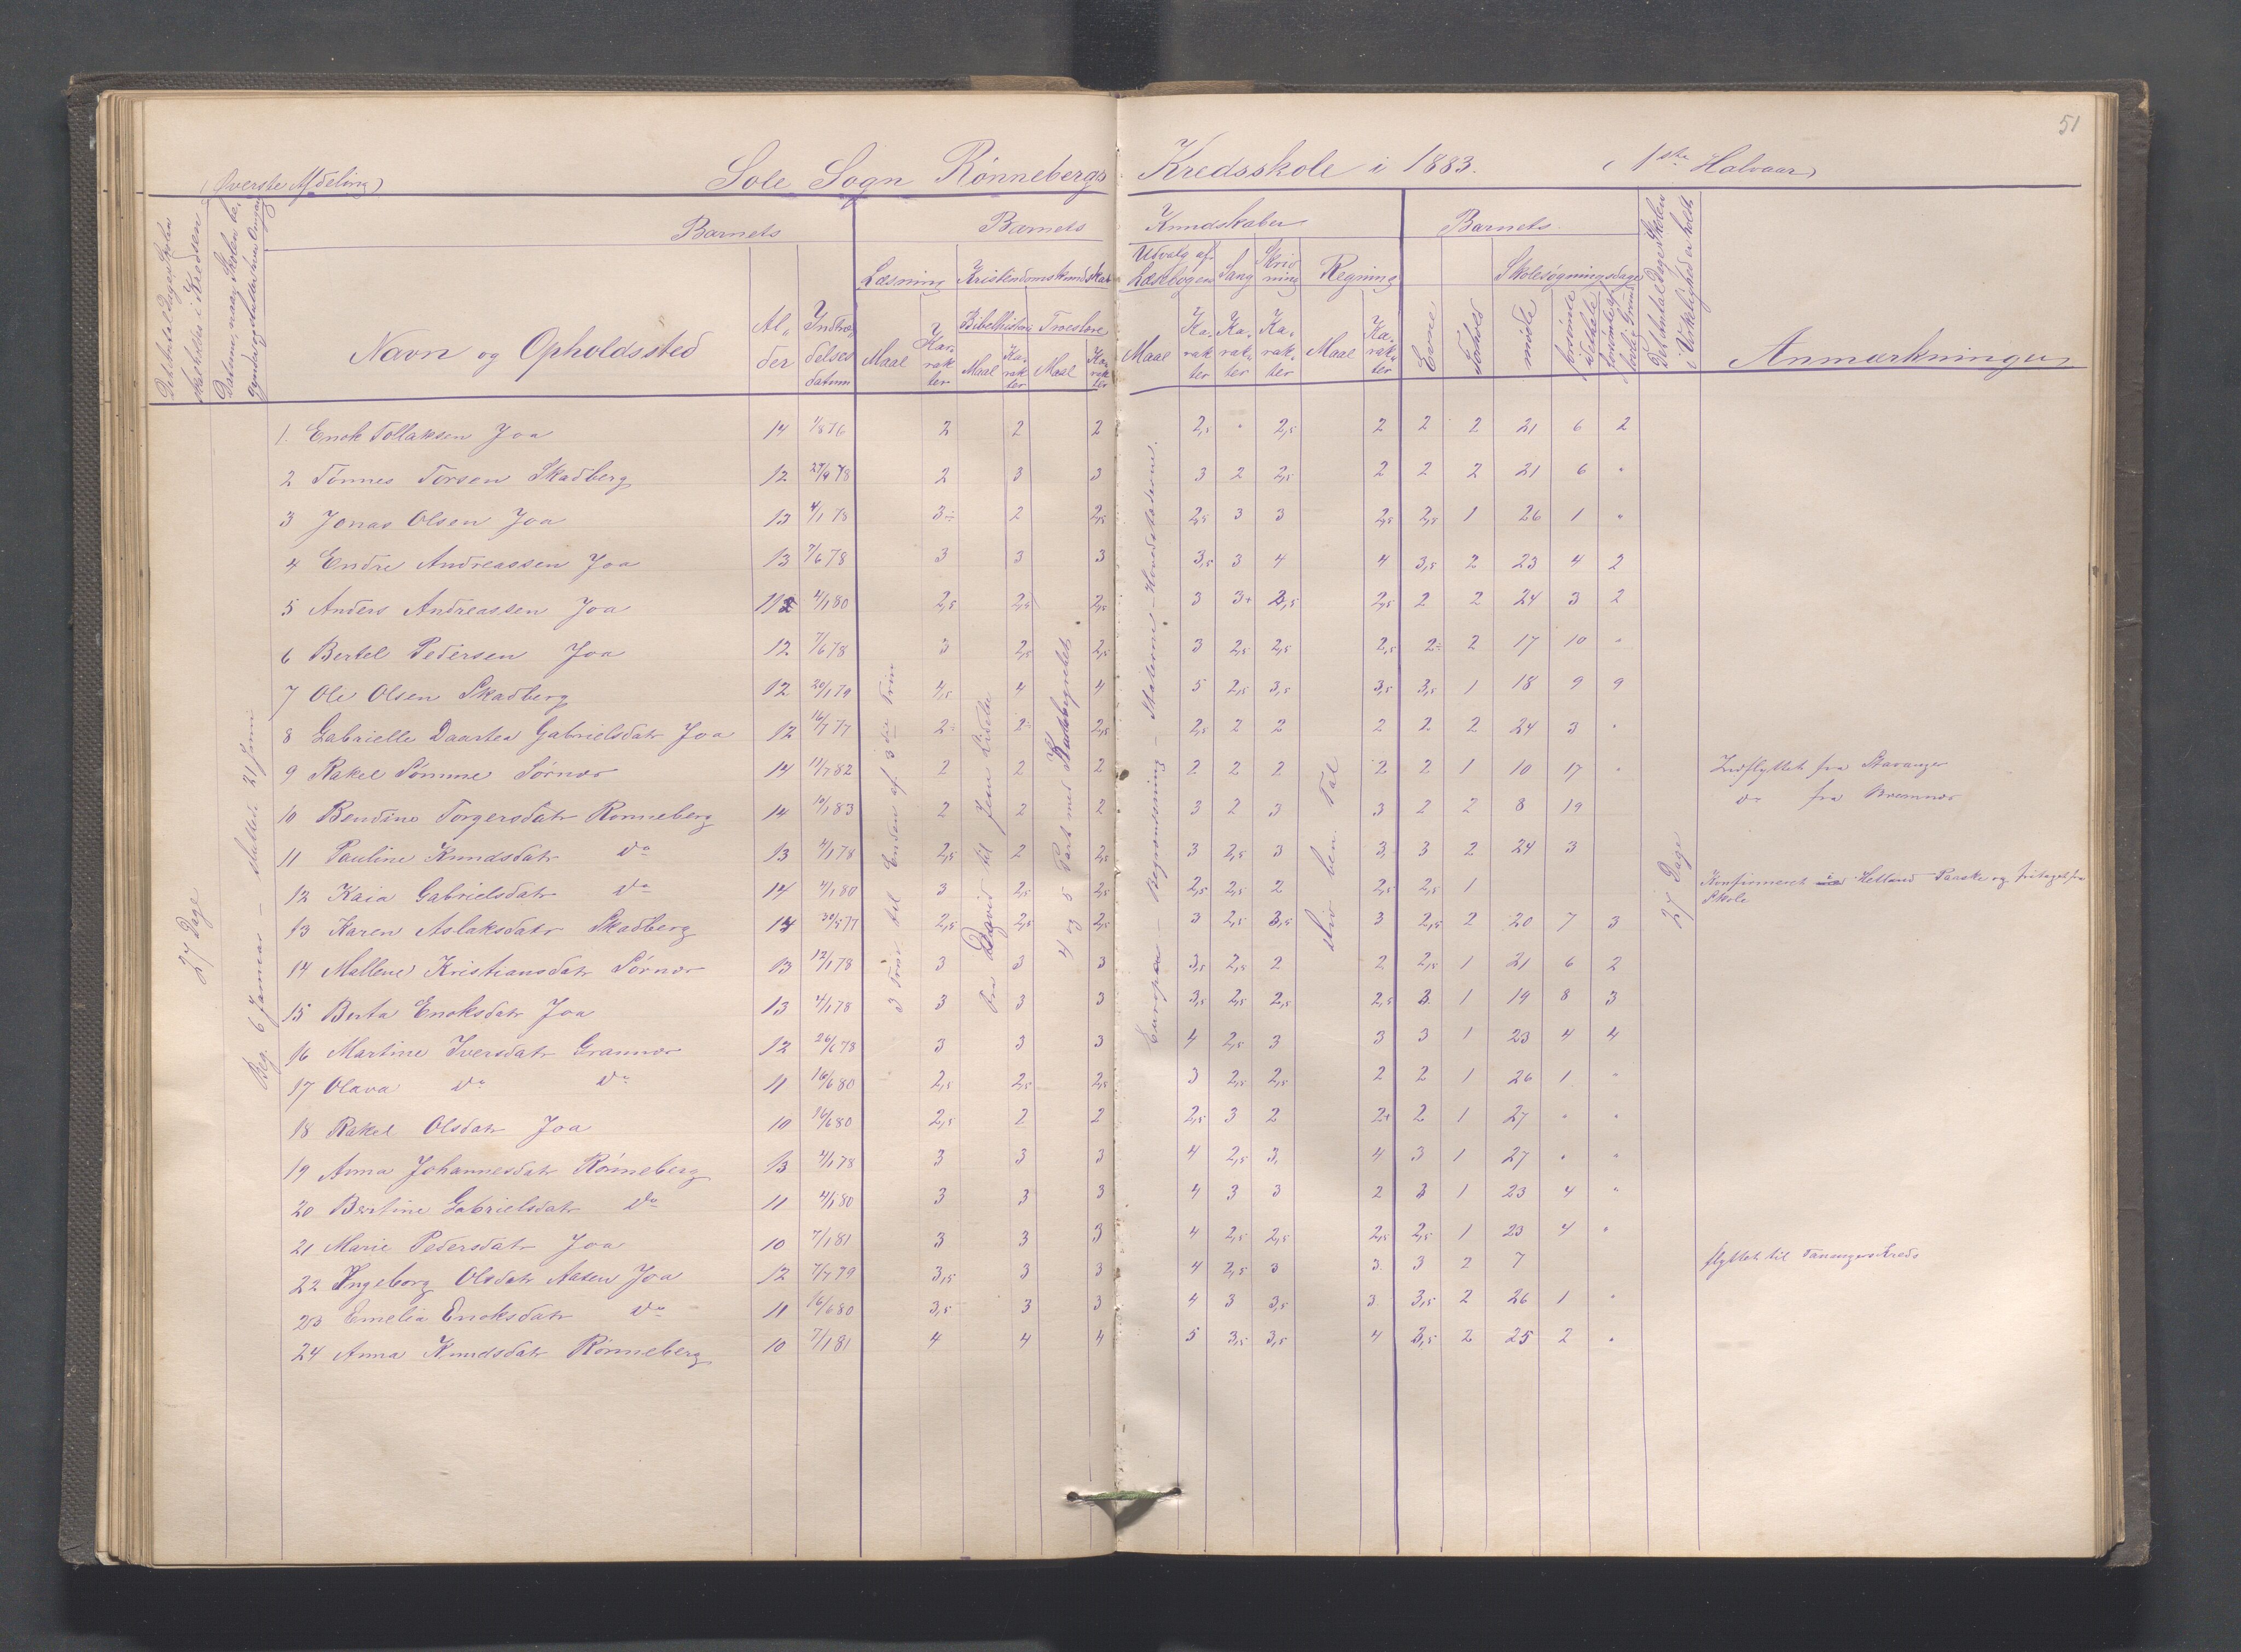 51
(Øverste Afdeling) Sole Sogn Rønnebergs Kredsskole i 1883. (1ste Halvaar)
Det Antal Dage Skolen skal holdes i Kredsen
Datum, naar Skolen begynder og slutter hver Omgang
Barnets
Barnets Kundskaber
Barnets
Det Antal Dage Skolen i Virkeligheden holdt
Læsning Kristendomskundskab Udvalg af Læsebogen Sang Skrivning Regning Skolesøgningsdage
Navn og Opholdssted Alder Indtrædelsesdatum Maal Karakter Bibelhistorie Troeslære Maal Karakter Maal Karakter Maal Karakter Karakter Karakter Maal Karakter Evne Forhold mødte forsømte i det hele Anmærkninger
27 Dage
Beg. 6 Januar – sluttede 21 Juni
3 Trin til Enden af 3die Trin
Fra David til Jesu Lidelse
4 og 5 Part med
Europa – Begrændsning – Staterne – Hovedstæderne.
Tal
27 Dage
1. Enok Tollaksen Joa 14 1/8 76 2 2 2 2,5 " 2,5 2 2 2 21 6 2
2 Tønnes Torsen Skadberg 12 29/9 78 2 3 3 3 2 2,5 2 2 2 21 6 "
3 Jonas Olsen Joa 13 4/1 78 3÷ 2 2,5 2,5 3 3 2,5 2,5 1 26 1 "
4 Endre Andreassen Joa 13 7/6 78 3 3 3 3,5 3 4 4 3,5 2 23 4 2
5 Anders Andreassen Joa 11 4/1 80 2,5 2,5 2,5 3 3+ 2,5 2,5 2 2 24 3 2
6 Bertel Pedersen Joa 12 7/6 78 3 2,5 2,5 3 2,5 2,5 2,5 2÷ 2 17 10 "
7 Ole Olsen Skadberg 12 20/1 79 4,5 4 4 5 2,5 3,5 3,5 3,5 1 18 9 9
8 Gabrielle Daartea Gabrielsdatr Joa 12 16/7 77 2÷ 2÷ 2,5 2,5 2 2 2 2 2 24 3 "
9 Rakel Sømme Sørnæs 14 11/7 82 2 2 2 2 2 2 2 2 1 10 17 " Indflyttet fra Stavanger
10 Bendine Torgersdatr Rønneberg 14 10/1 83 2 2 2 3 2 3 3 2 2 8 19 do fra
11 Pauline Knudsdatr do 13 4/1 78 2,5 2 2,5 3 2,5 3 3 3 2 24 3
12 Kaia Gabrielsdatr do 14 4/1 80 3 2,5 2,5 2,5 2,5 2 2,5 2,5 1 Konfirmeret i Hetland Paaske og fritaget fra Skole
13 Karen Aslaksdatr Skadberg 14 30/5 77 2,5 2,5 2,5 3 2,5 3,5 3 2,5 2 20 7 3
14 Mallene Kristiansdatr Sørnæs 13 12/1 78 3 3 3 3,5 2,5 2 2 2,5 1 21 6 2
15 Berta Enoksdatr Joa 13 4/1 78 3 3 3 3,5 2,5 2,5 2,5 3 1 19 8 3
16 Martine Iversdatr Grannæs 12 26/6 78 3 3 3 4 2,5 3 3 3 1 23 4 4
17 Olava do do 11 16/6 80 2,5 2,5 2,5 3 2,5 2,5 2 2 1 26 1 "
18 Rakel Olsdatr Joa 10 16/6 80 2,5 2 2 2,5 3 2 2+ 2 1 27 " "
19 Anna Johannesdatr Rønneberg 13 4/1 78 3 3 3 4 2,5 3 4 3 1 27 " "
20 Bertine Gabrielsdatr do 11 4/1 80 3 3 3 4 3 3 2 3 1 23 4 "
21 Marie Pedersdatr Joa 10 7/1 81 3 3 3 4 2,5 2,5 2,5 2,5 1 23 4 "
22 Ingeborg Olsdatr Aasen Joa 12 7/7 79 3,5 3 3 4 2,5 3 3 3 2 7 flyttet til Tanangers Kreds
23 Emelia Enoksdatr do 11 16/6 80 3,5 3 3 4 3 3,5 3 3,5 2 26 1 "
24 Anna Knudsdatr Rønneberg 10 7/1 81 4 4 4 5 3,5 3,5 4 3,5 2 25 2 "